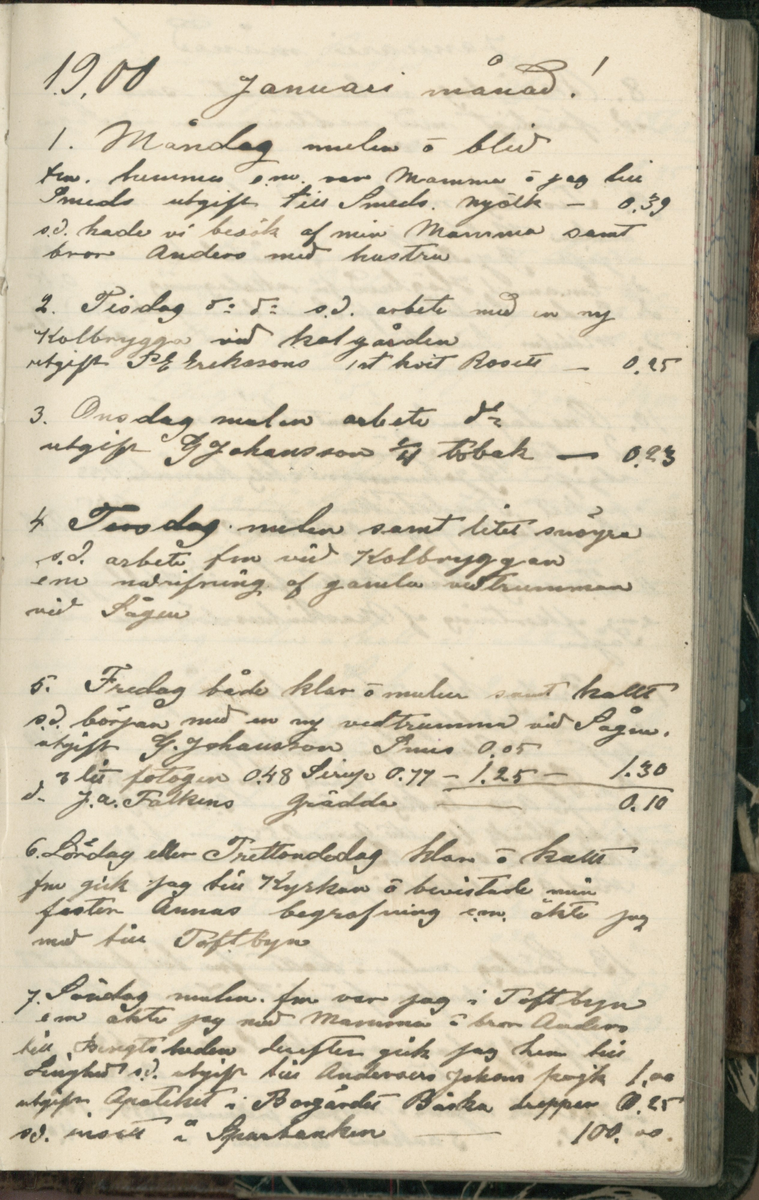 19,00 Januari månad!
1. Måndag mulen ō blid
fm. hemma e.m. var Mamma ō jag till
Smeds utgift till Smeds. mjölk — 0.39
s.d. hade vi besök af min Mamma samt
bror Anders med hustru
2. Tisdag d:o d:o s.d. arbete med en ny
Kolbrygga vid kolgården
utgift P E Erikssons 1 st hvit Rosett — 0.25
3. Onsdag mulen arbete d:o
utgift G Johansson tobak — 0.23
4 Torsdag mulen samt litet snöyra
s.d. arbete fm vid Kolbryggan
em nedrifning af gamla vedtrumman
vid Sågen
5. Fredag både klar ō mulen samt kallt
s.d. början med en ny vedtrumma vid Sågen.
utgift G. Johansson Snus 0.05
3 lit fotogen 0.48 Sirup 0.77 — 1.25 — 1.30
d- J.A. Falkens Grädde — 0.10
6. Lördag eller Trettondedag klar ō kallt
fm gick jag till Kyrkan ō bevistade min
faster Annas begrafning em. åkte jag
med till Toftbyn
7. Söndag mulen. fm var jag i Toftbyn
em åkte jag med Mamma ō bror Anders
till Bengtsheden derefter gick jag hem till
Linghed s.d. utgift till Anderssers Johans pojk 1.00
utgift Apoteket i Borgärdet Bäska droppar 0.25
s.d. insatt å Sparbanken — 100.00.